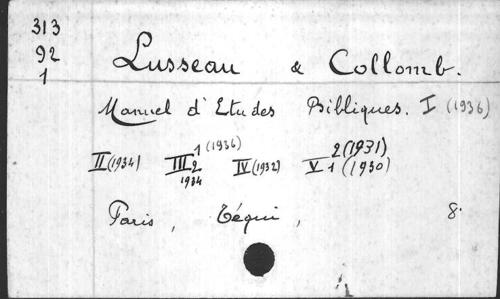 313
92
1
Lusseau & Collomb.
Manuel d'Etudes Bibliques. I (1936)
II (1934) III 1 (1936) 2 1934 IV (1932) V 2 (1931) 1 (1930)
Paris, Téqui, 8°